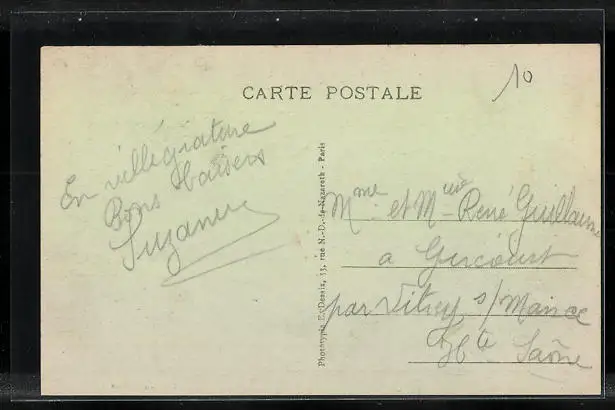 10
CARTE POSTALE
En villégiature
Bons baisers
Suzanne
Phototypie Ex Dessaix, 13, rue N.-D.-de-Nazareth - Paris
Mme et Mr René Guillaume
a
par Vitrey s/ Mance
Hte Saône